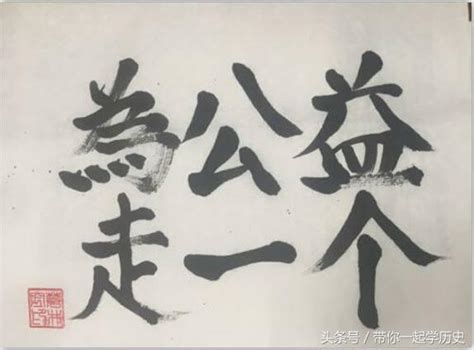 為公益
走一个
头条号 / 带你一起学历史